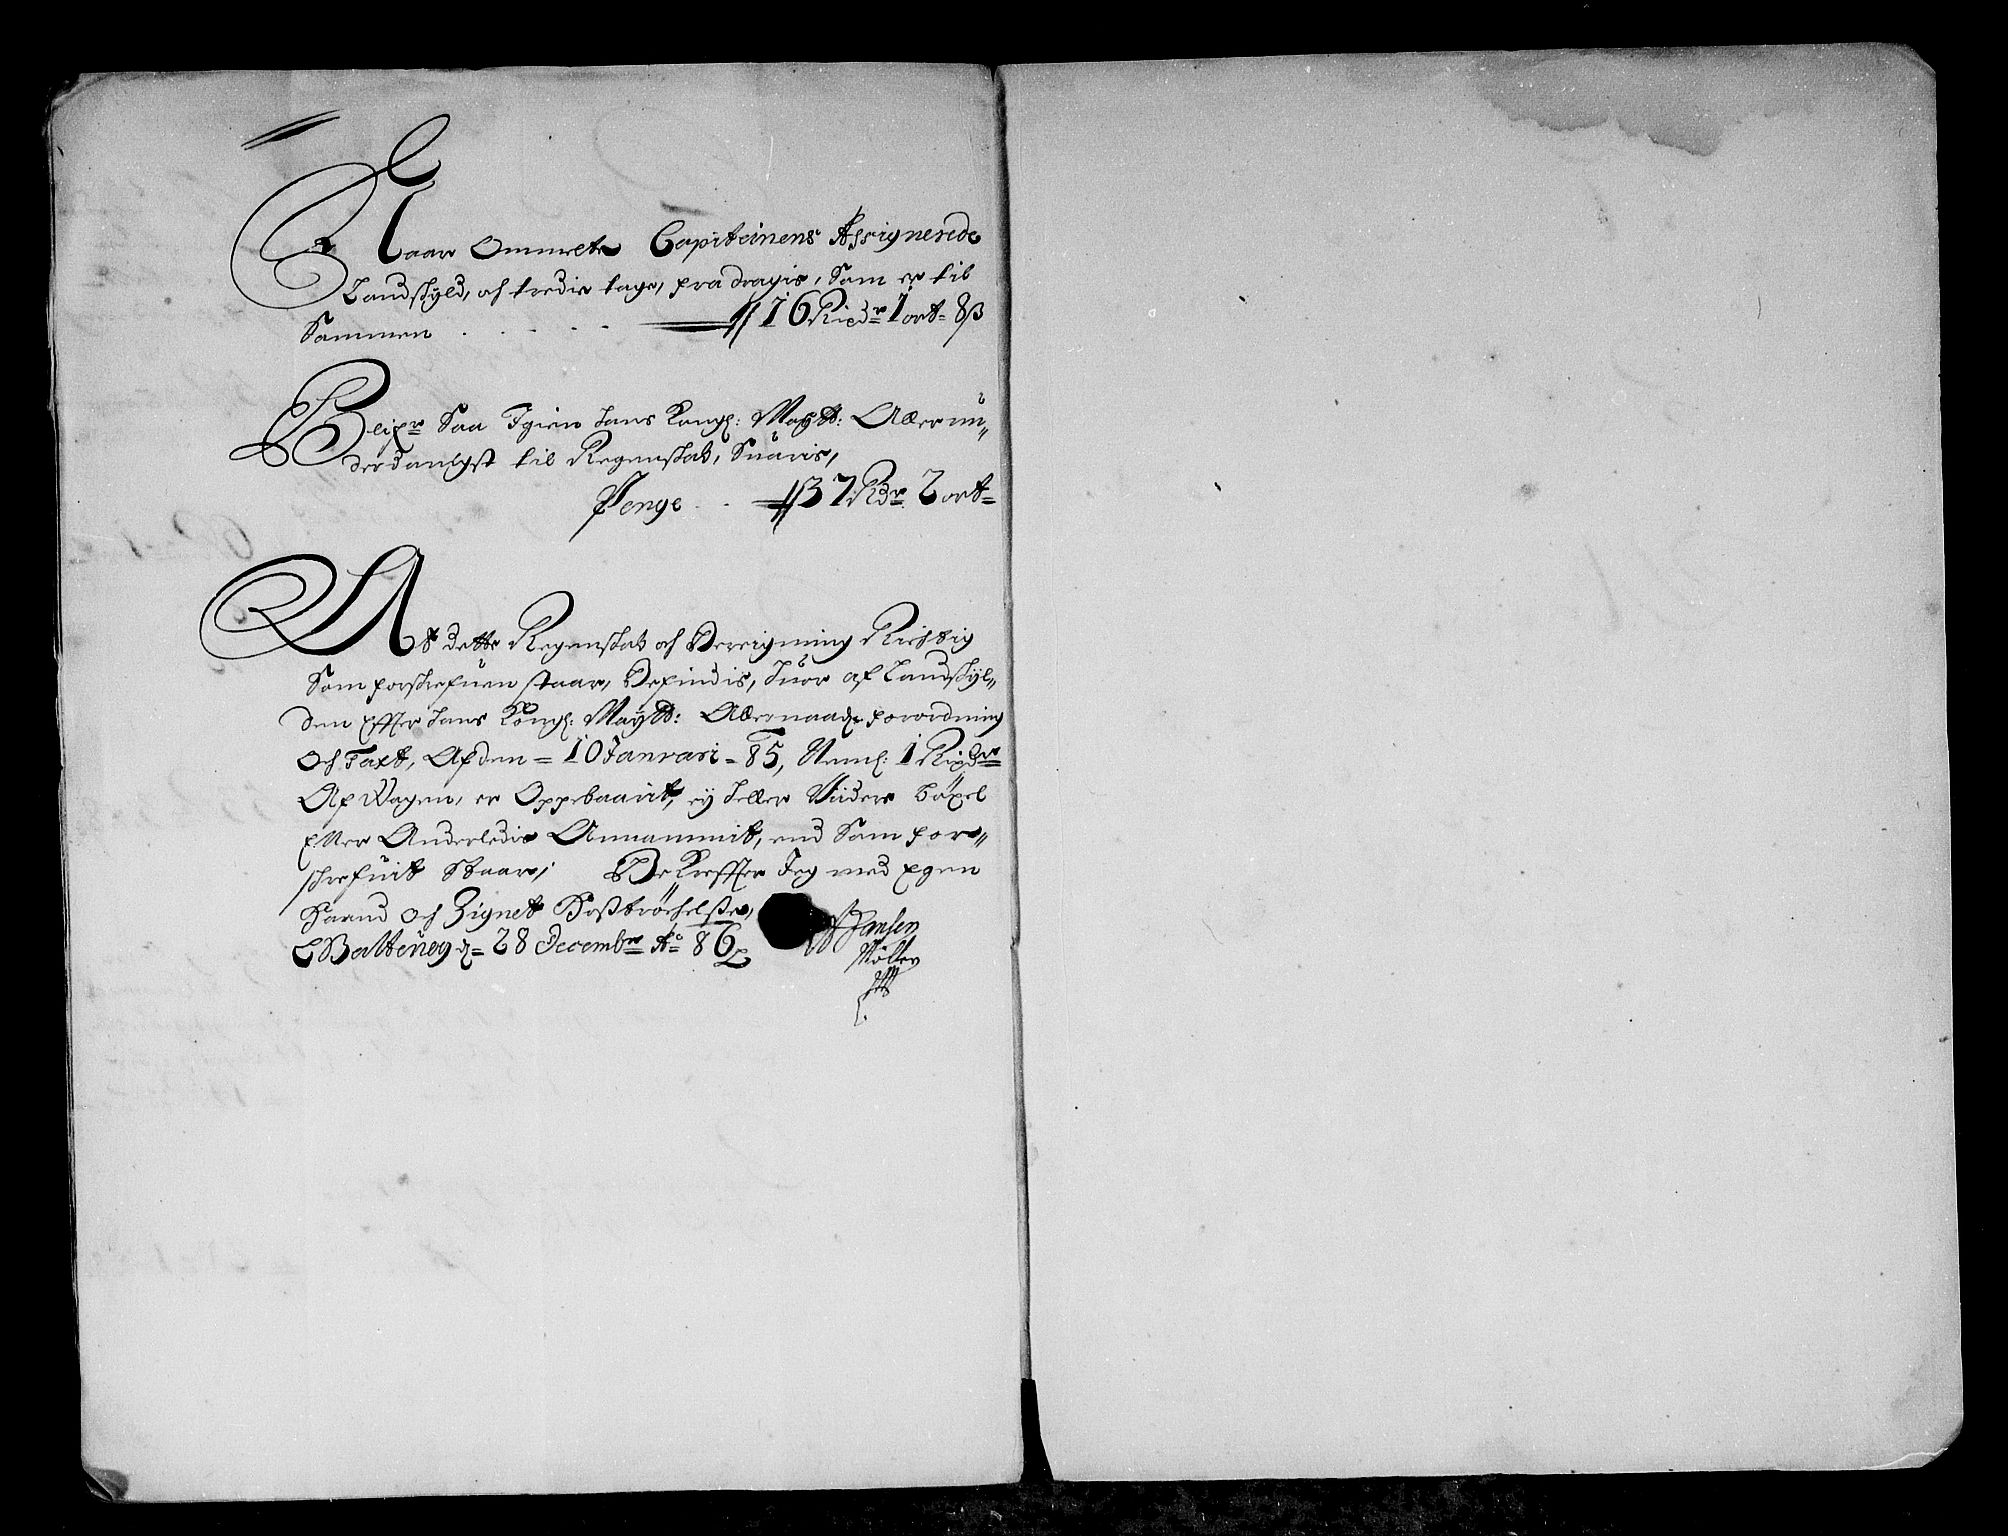 Naar Ommelte Capiteinens Assignerede
Landskyld, och tredie tage, fradragis, Som er til
Sammen . . . . . 16 Rixdr 1 ort 8 ß
Blifr Saa Igien hans Kongl: Maytt: Allerun„
derdanigst til Regenskab, Suaris,
Penge . . 37 Rdr 2 ort
At dette Regenskab och Bereigning Richtig
Som forschrefuen staar, Befindis, huor af Landskyl„
den Effter hans Kongl: Maytt: Allernaadste forordning
Och Taxt, Af den 10 Januari 85, Neml: 1 Rixdr
Af Wogen, er Oppebaarit, ey heller Vider bøxel
Eller Anderledis Annammit, end Som for„
schrefuit Staar, Bekreffter Jeg med Egen
Haand Och Zignet Hoßtrøchelse,
Balteuog d. 28 Decembr Ao 86
Hansen
Møller